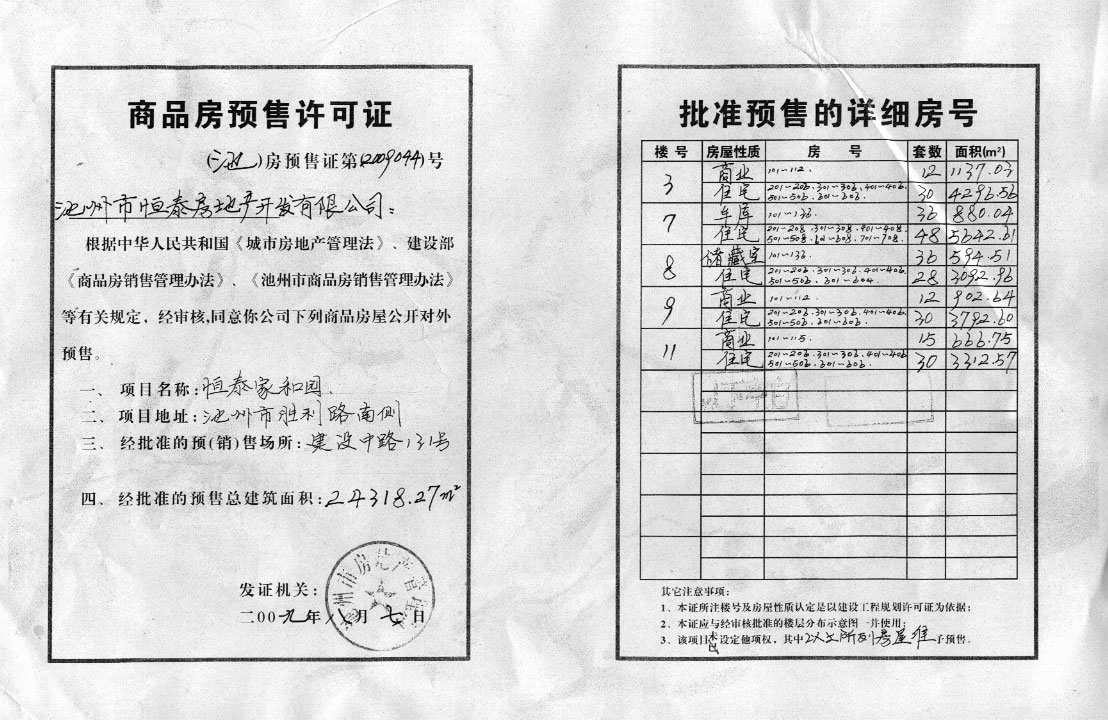 商品房预售许可证
(池)房预售证第(2009044)号
池州市恒泰房地产开发有限公司:
根据中华人民共和国《城市房地产管理法》、建设部
《商品房销售管理办法》、《池州市商品房销售管理办法》
等有关规定，经审核,同意你公司下列商品房屋公开对外
预售。
一、项目名称:恒泰家和园.
二、项目地址:池州市胜利路南侧
三、经批准的预(销)售场所:建设中路131号
四、经批准的预售总建筑面积:24318.27m²
发证机关:
二00九年八月七日
池州市房地产管理
批准预售的详细房号
楼号 房屋性质 房号 套数 面积(m²)
3 商业 101~112. 12 1137.03
住宅 201~206.301~306.401~406. 30 4296.56
501~506.601~606.
7 车库 101~136. 36 880.04
住宅 201~208.301~308.401~408. 48 5642.61
501~508.601~608.701~708.
8 储藏室 101~136. 36 594.51
住宅 201~206.301~306.401~406. 28 3092.96
501~506.601~604.
9 商业 101~112. 12 902.64
住宅 201~206.301~306.401~406. 30 3792.60
501~506.601~606.
11 商业 101~115. 15 666.75
住宅 201~206.301~306.401~406 30 3312.57
501~506.601~606.
其它注意事项:
1、本证所注楼号及房屋性质认定是以建设工程规划许可证为依据;
2、本证应与经审核批准的楼层分布示意图一并使用;
3、该项目未设定他项权，其中以上所列房屋准予预售。